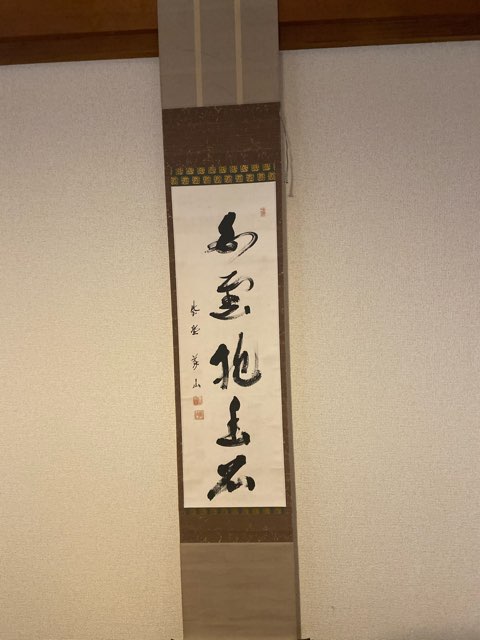 白雲抱幽石
山